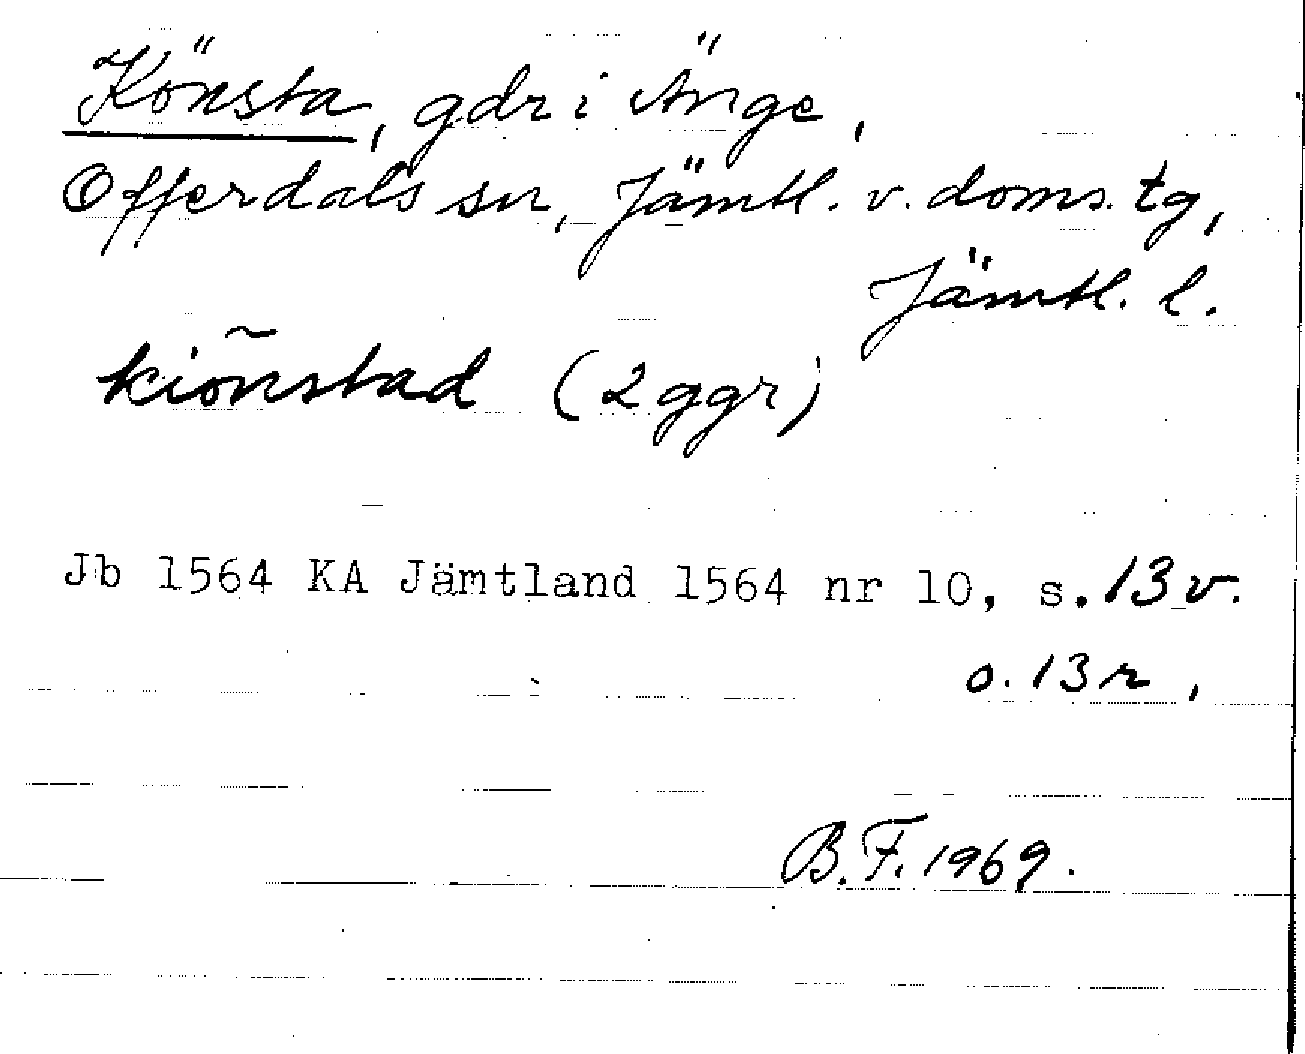 Könsta, gdr i Änge,
Offerdals sn, Jämtl. v. doms. tg,
Jämtl. l.
kiõnstad (2 ggr)
Jb 1564 KA Jämtland 1564 nr 10, s. 13 v.
o. 13 r,
B.F. 1969.